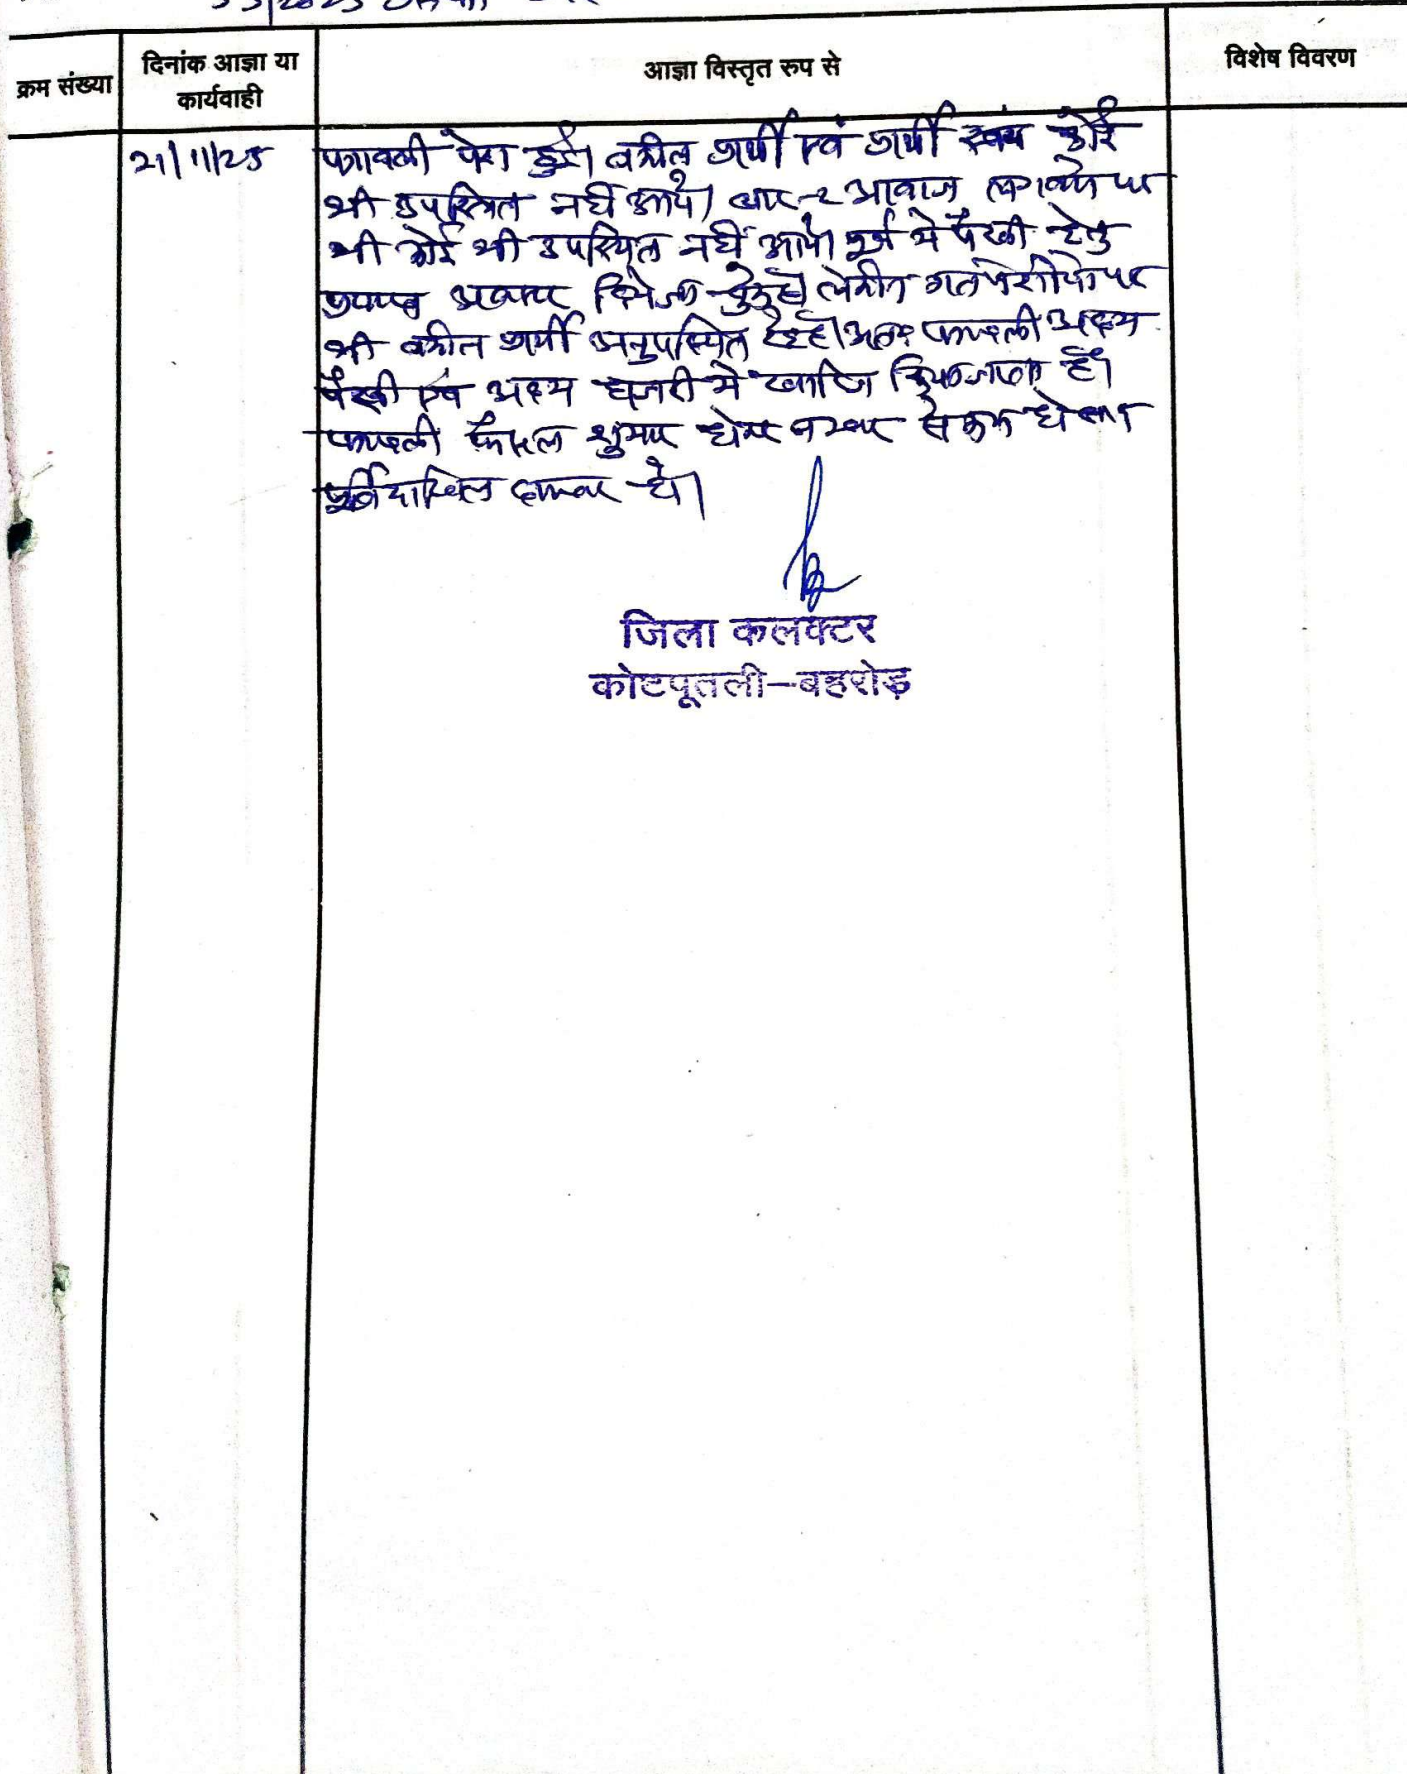 क्रम संख्या
दिनांक आज्ञा या
कार्यवाही
आज्ञा विस्तृत रुप से
विशेष विवरण
21/11/25
पत्रावली पेश हुई। वकील प्रार्थी एवं प्रार्थी स्वयं कोई
भी उपस्थित नहीं आये। बार-2 आवाज लगवाने पर
भी कोई भी उपस्थित नहीं आया। पूर्व मे पैरवी हेतु
अवसर दिये जा चुके है। लेकीन गत पेशीयो पर
भी वकील प्रार्थी अनुपस्थित रहे है। अतः पत्रावली अदम
पैरवी एवं अदम हाजरी मे खारिज किया जाता है।
पत्रावली फैसल शुमार होकर नम्बर से कम होकर
दाखिल दफ्तर हो।
जिला कलक्टर
कोटपूतली-बहरोड़